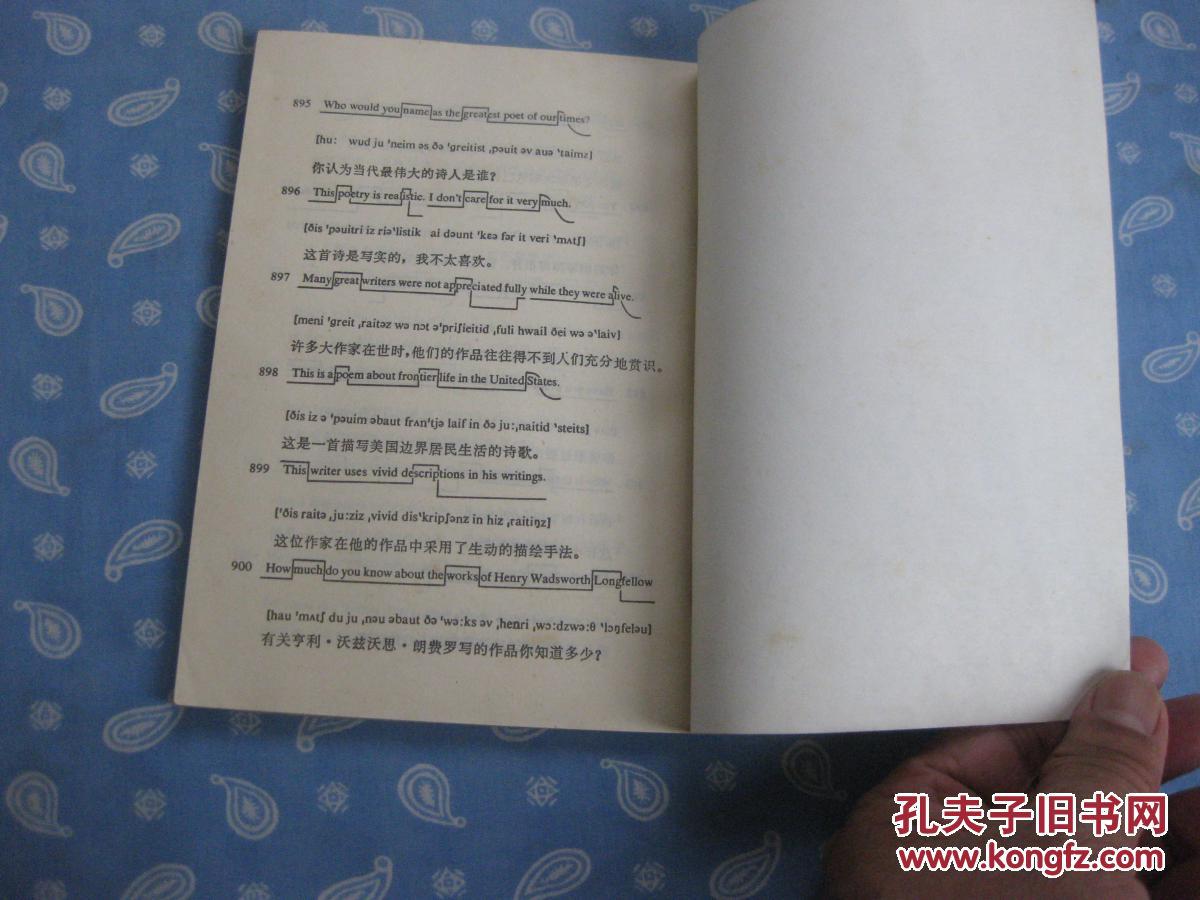 895 Who would you name as the greatest poet of our times?
[hu: wud ju 'neim əs ðə 'greitist ,pəuit əv auə 'taimz]
你认为当代最伟大的诗人是谁？
896 This poetry is realistic. I don't care for it very much.
[ðis 'pəuitri iz riə'listik ai dəunt 'kɛə fər it veri 'mʌtʃ]
这首诗是写实的，我不太喜欢。
897 Many great writers were not appreciated fully while they were alive.
[meni 'greit ,raitəz wə nɔt ə'priʃieitid ,fuli hwail ðei wə ə'laiv]
许多大作家在世时，他们的作品往往得不到人们充分地赏识。
898 This is a poem about frontier life in the United States.
[ðis iz ə 'pəuim əbaut frʌn'tjə laif in ðə ju:,naitid 'steits]
这是一首描写美国边界居民生活的诗歌。
899 This writer uses vivid descriptions in his writings.
['ðis raitə ,ju:ziz ,vivid dis'kripʃənz in hiz ,raitiŋz]
这位作家在他的作品中采用了生动的描绘手法。
900 How much do you know about the works of Henry Wadsworth Longfellow
[hau 'mʌtʃ du ju ,nəu əbaut ðə 'wə:ks əv ,henri ,wɔ:dzwə:θ 'lɔŋfeləu]
有关亨利·沃兹沃思·朗费罗写的作品你知道多少？
孔夫子旧书网
www.kongfz.com